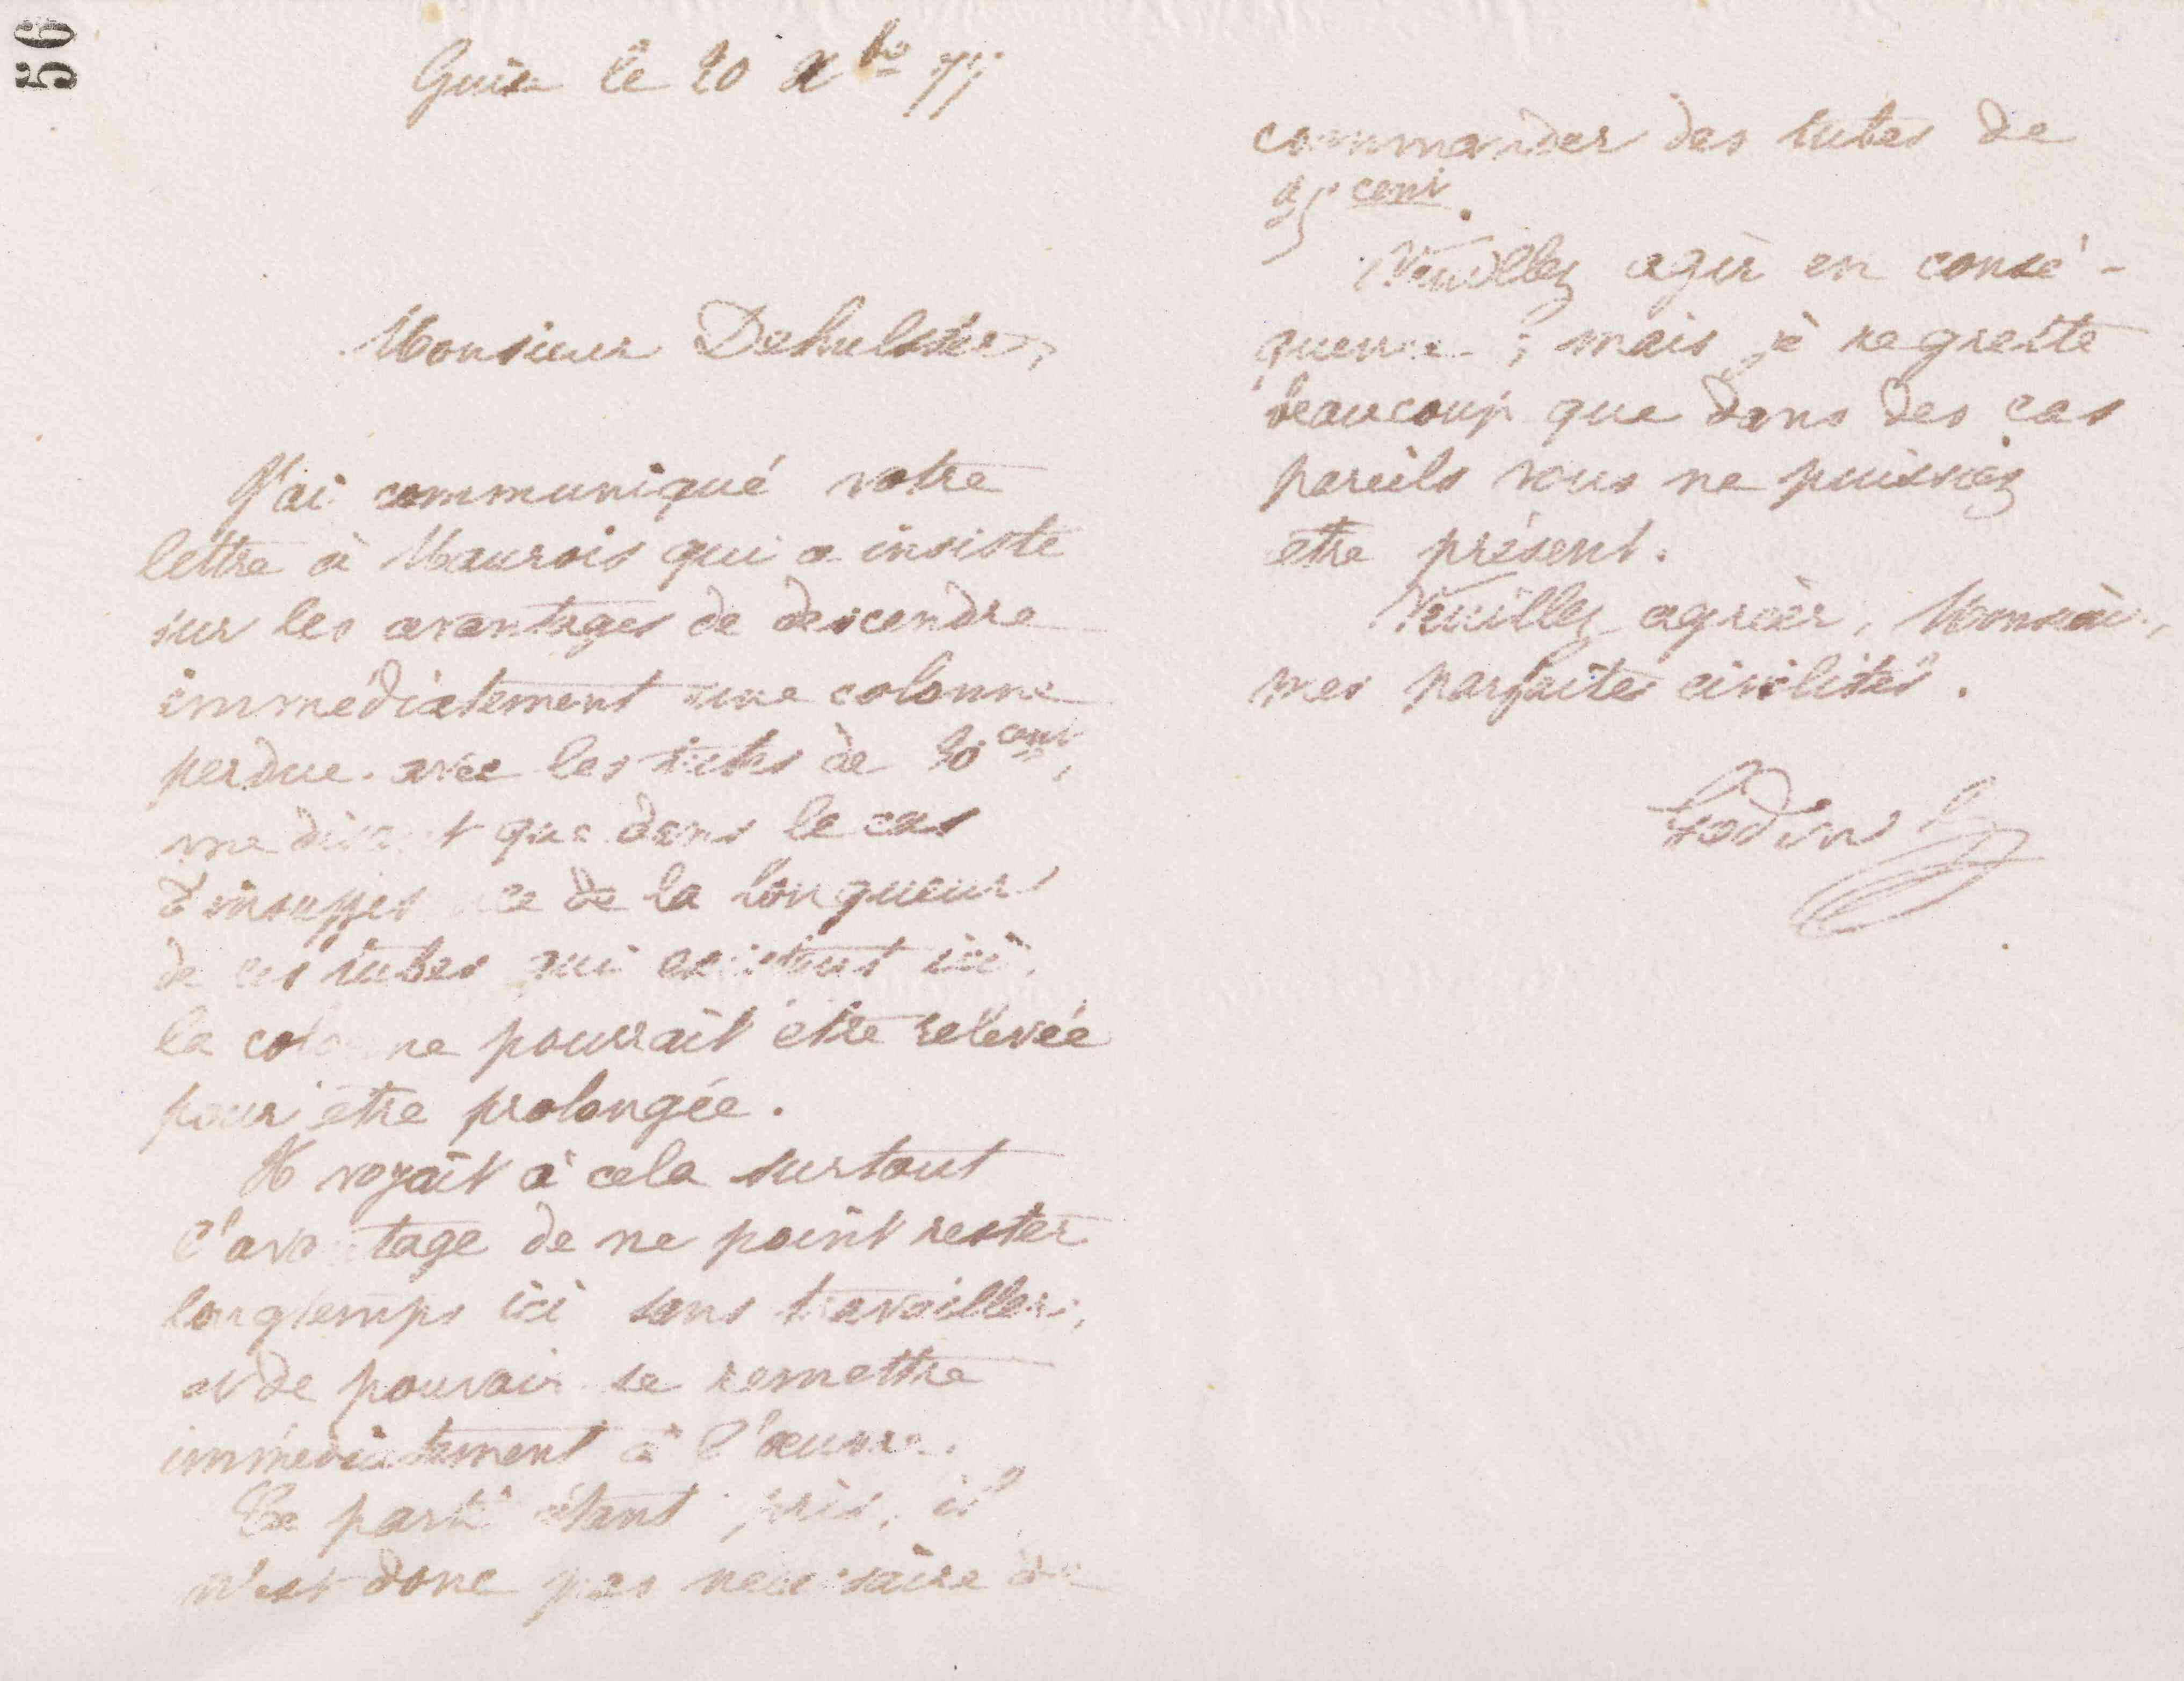 56
Guise le 20 Xbre 77
Monsieur Dehulster,
J'ai communiqué votre
lettre à Maurois qui a insisté
sur les avantages de descendre
immédiatement une colonne
perdue avec les tubes de 20 cent,
me disant que dans le cas
d'insuffisance de la longueur
de ces tubes qui existent ici,
la colonne pourrait être relevée
pour être prolongée.
Il voyait à cela surtout
l'avantage de ne point rester
longtemps ici sans travailler,
et de pouvoir se remettre
immédiatement à l'œuvre.
Ce parti étant pris, il
n'est donc pas nécessaire de
commander des tubes de
25 cent.
Veuillez agir en consé-
quence ; mais je regrette
beaucoup que dans des cas
pareils vous ne puissiez
être présent.
Veuillez agréer, Monsieur,
mes parfaites civilités.
Godin